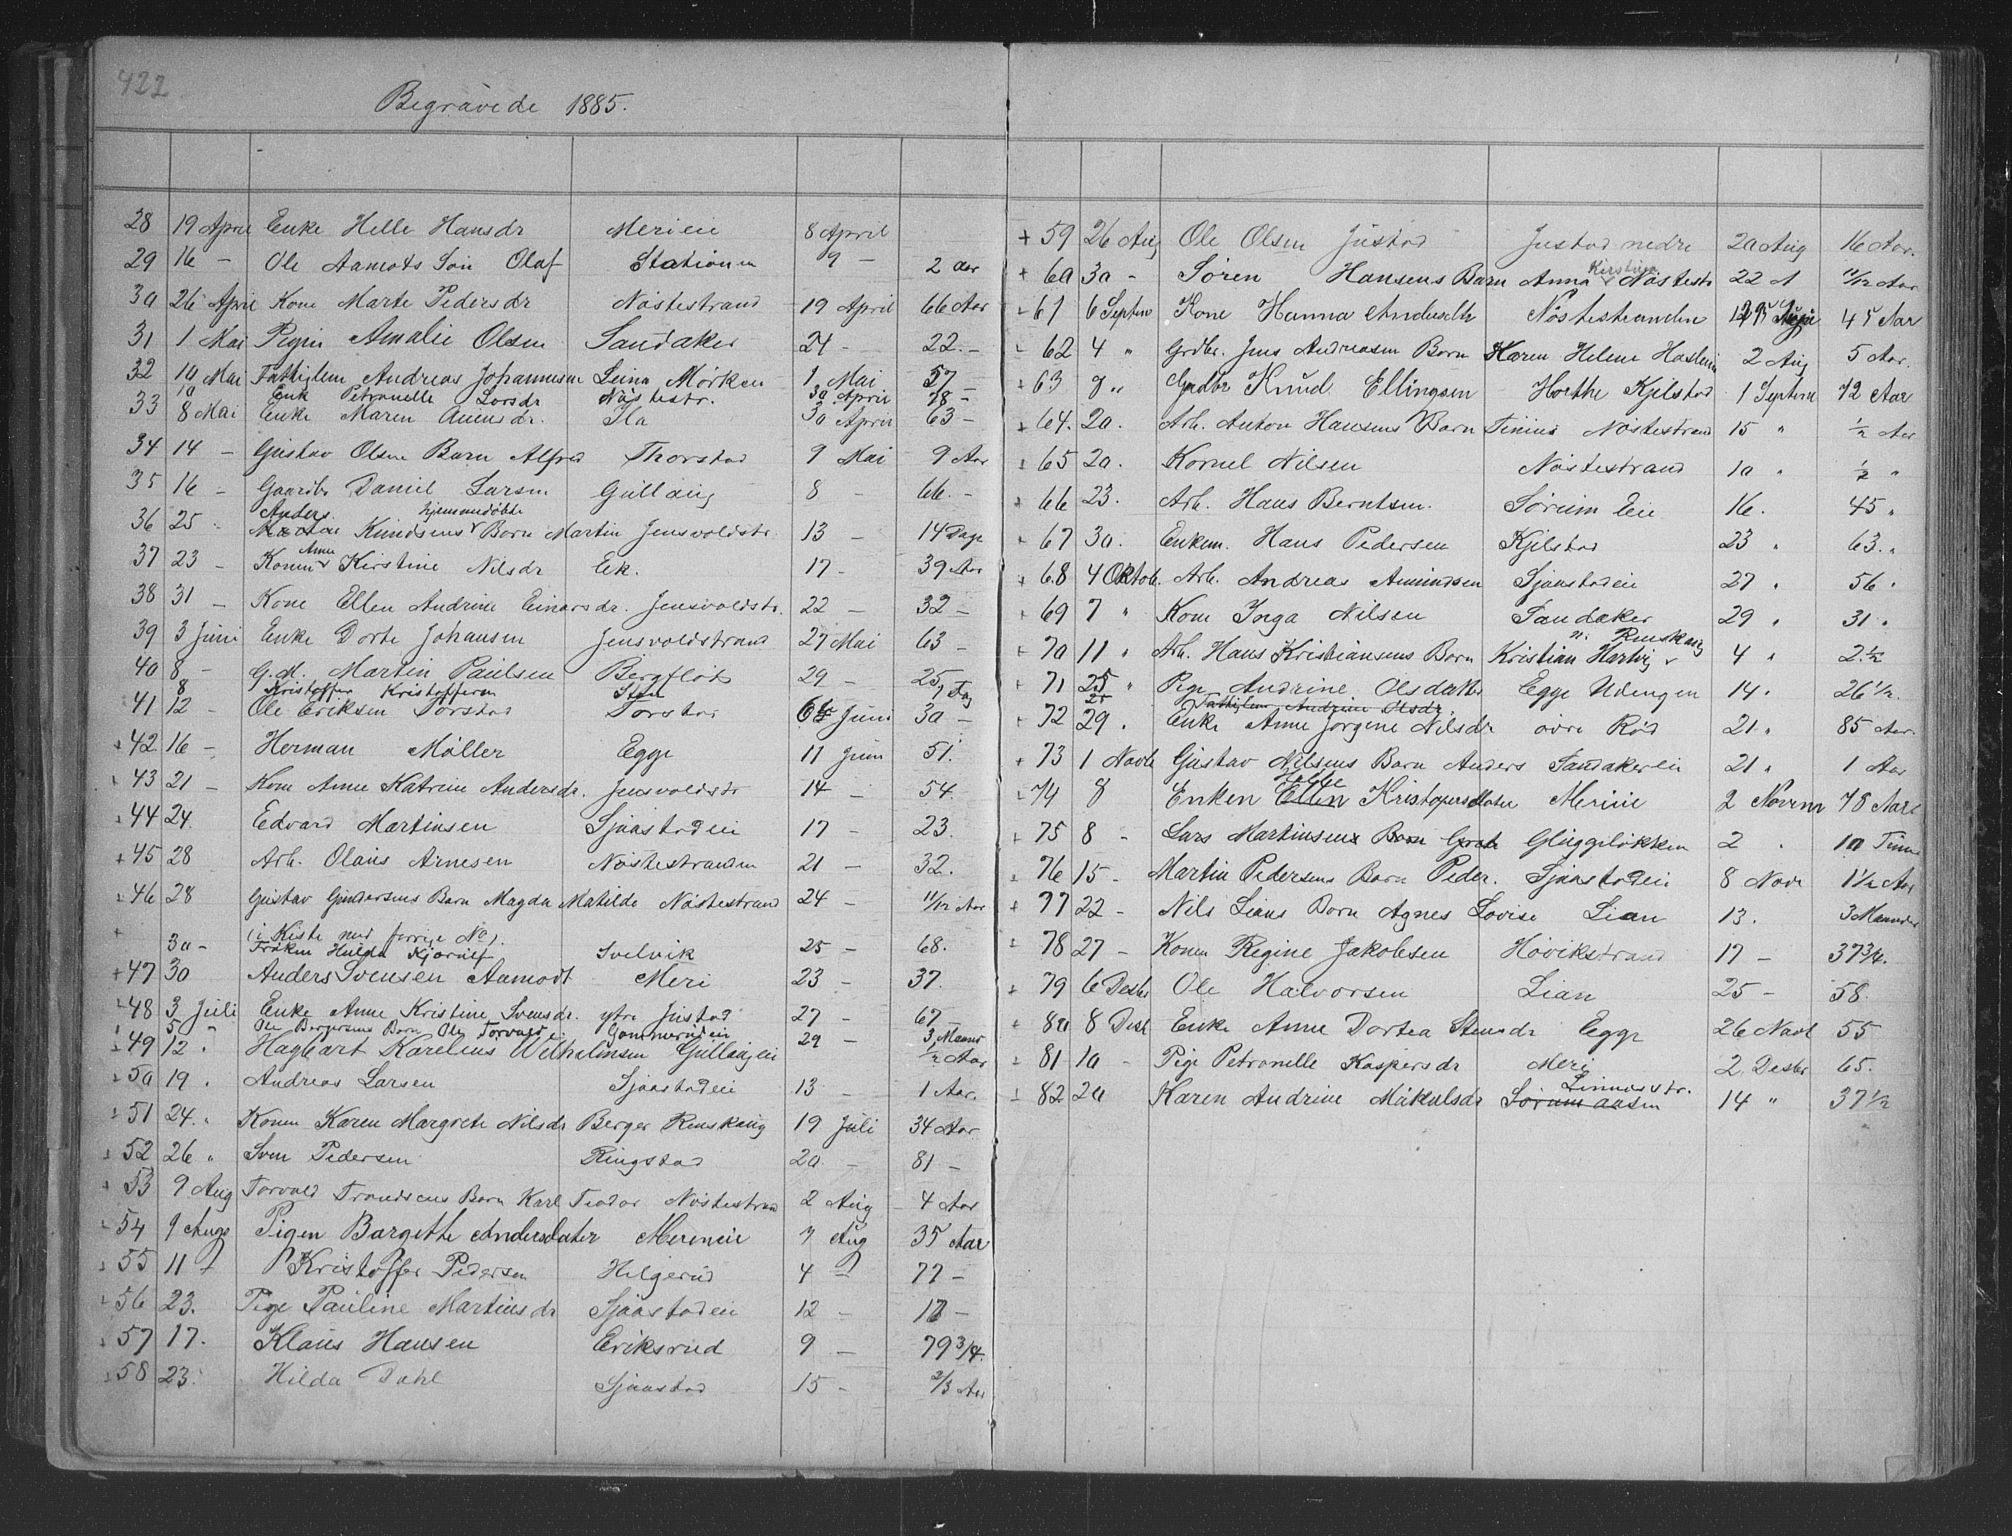 422
Begravede 1885.
28 19 April Enke Helle Hansdr Merieie 8 April
29 16 — Ole Aamots Søn Olaf Stationen 9 — 2 aar
30 26 April Kone Marte Pedersdr Nöstestrand 19 April 66 Aar
31 1 Mai Pigen Amalie Olsen Sandaker 24 — 22. —
32 10 Mai Fattiglem Andreas Johannesen Leina Mørken 1 Mai 57 —
10 Enk Petronelle Larsdr Nöstestr. 30 April 78 —
33 8 Mai Enke Maren Amundsdr. Ila 30 April 63 —
34 14 — Gustav Olsen Barn Alfred Thorstad 9 Mai 9 Aar
35 16 — Gaardbr Daniel Larsen Gullaug 8 — 66. —
Anders. hjemmedøbte
36 25 Knudsens Barn Martin Jensvoldstr. 13 — 14 Dage
Anne
37 23 — Konen Kirstine Nilsdr Ek. 17 — 39 Aar
38 31 — Kone Ellen Andrine Einarsdr. Jensvoldstr. 22 — 32 —
39 3 Juni Enke Dorte Johansen Jensvoldstrand 27 Mai 63 —
40 8 — G.M. Martin Paulsen Bergflødt 29 — 25
8 Kristoffer Kristoffersen
41 12 — Ole Eriksen Torstad Torstad Juni 30 —
+ 42 16 — Herman Møller Egge 11 Juni 51.
+ 43 21 — Kone Anne Katrine Andersdr. Jensvoldstr 14 — 54.
+ 44 24. Edvard Martinsen Sjaastadeie 17 — 23.
+ 45 28 Arb. Olaus Arnesen Nöstestranden 21 — 32.
+ 46 28 Gustav Gundersens Barn Magda Matilde Nöstestrand 24 — 11/12 Aar
(i Kiste med forrige No).
30 — Frøken Hulda Kjerulf Svelvik 25 — 68.
+ 47 30 Anders Svensen Aamodt Meri 23 — 37.
+ 48 3 Juli Enke Anne Kristine Svensdr. ytre Justad 27 — 67 —
5 " Ole Børgersens Barn Ole Torvald 3 Maan
+ 49 12 " Hagbart Karelius Wilhelmsen Gullaugeie 29 — 1/2 Aar
+ 50 19 " Andreas Larsen Sjaastadeie 13 — 1 Aar.
+ 51 24. " Konen Karen Margrete Nilsdr Berger Renskaug 19 Juli 34 Aar
+ 52 26 " Sven Pedersen Ringstad 20 — 81 —
+ 53 9 Aug Torvald Trondsens Barn Karl Teodor Nöstestrand 2 Aug 4 Aar
+ 54 9 Augs Pigen Bargitte Andersdater Merieneie 7 Aug 35 Aar
+ 55 11 Kristoffer Pedersen Hilgerud 4 — 77 —
+ 56 23. Pige Pauline Martinsdr Sjaastadeie 12 —
+ 57 17. Klaus Hansen Eriksrud 9 — 79 3/4.
+ 58 23. Hilda Dahl Sjaastad 15 — 2/3 Aar
+ 59 26 Aug Ole Olsen Justad Justad nedre 20 Aug 16 Aar.
Kirstine
+ 60 30 — Søren Hansens Barn Anna Nöstestr 22 10/12 Aar
+ 61 6 Septem Kone Hanna Andersdtr Nöstestranden 45 Aar
+ 62 4 " Grdbr. Jens Andreasen Barn Karen Helene Haslum 2 Aug 5 Aar.
+ 63 9 " Grdbr Knud Ellingsen Horthe Kjelstad 1 Septem 72 Aar
+ 64. 20. Arb. Anton Hansens Barn Tinius Nöstestrand 15 " 1/2 Aar
+ 65 20. Kornel Nilsen Nöstestrand 10 " 1/2 "
+ 66 23. Arb. Hans Berntsen. Sørum Eie 16. 45 "
+ 67 30. Enkem. Hans Pedersen Kjelstad 23 " 63. "
+ 68 4 Oktob. Arb. Andreas Amundsen Sjaastadeie 27 " 56 "
+ 69 7 " Kone Inga Nilsen Sandaker 29 " 31 "
Renskaug
+ 70 11 " Arb. Hans Kristiansens Barn Kristian Hartvig 4 " 2 1/2
+ 71 25 " Pige Andrine Olsdatter Egge Udengen 14 " 26 1/2.
25 Fattiglem Andrine Olsdr.
+ 72 29. Enke Anne Jorgene Nilsdr øvre Rød 21 " 85 Aar.
+ 73 1 Novb Gustav Nilsens Barn Anders Sandakereie 21 " 1 Aar
Helge
+ 74 8 Enken Ellen Kristofersdater Merieie 2 Novem 78 Aar
+ 75 8 — Lars Martinsens Barn Gluggeløkken 2 " 10 Time
+ 76 15 — Martin Pedersens Barn Peder. Sjaastadeie 8 Novb 1 1/2 Aar
+ 77 22 — Nils Lians Barn Agnes Lovise Lian 13. 3 Maaneder
+ 78 27 — Konen Regine Jakobsen Høvikstrand 17 — 37 3/4.
+ 79 6 Desbr Ole Halvorsen Lian 25 — 58.
+ 80 8 Desb Enke Anne Dortea Stensdr Egge 26 Novb 55
+ 81 10 — Pige Petronelle Kaspersdr Meri 2 Desbr 65.
Linnesstr.
+ 82 20 Karen Andrine Mikalsdr Sørumaasen 14 " 37 1/2